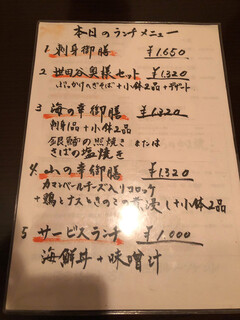 本日のランチメニュー
1. 刺身御膳 ¥1,650
2. 世田谷奥様セット ¥1,320
ぶっかけのぎそば+小鉢2品+デザート
3 海の幸御膳 ¥1,320
刺身1品+小鉢2品
銀鱈の煮焼き または
さばの塩焼き
4. 山の幸御膳 ¥1,320
カマンベールチーズ入りコロッケ
+鶏とナスときのこの煮浸し+小鉢2品
5 サービスランチ ¥1,000
海鮮丼+味噌汁